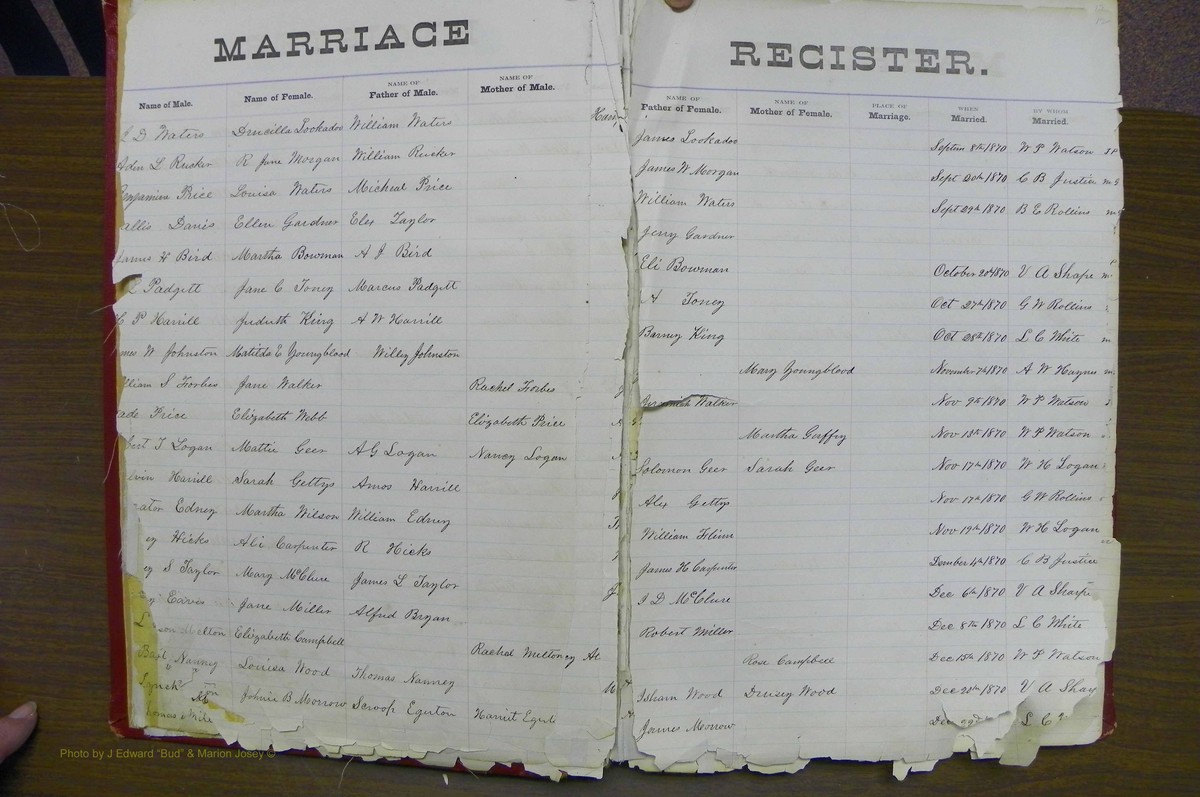 MARRIAGE REGISTER.
Name of Male. Name of Female. NAME OF Father of Male. NAME OF Mother of Male.
D Waters Drucilla Lookadoo William Waters
L Rucker R Jane Morgan William Rucker
Price Louisa Waters Micheal Price
Davis Ellen Gardner Elex Taylor
H Bird Martha Bowman A J Bird
Padgett Jane C Toney Marcus Padgett
P Harrill Judath King A W Harrill
W Johnston Matilda E Youngblood Willey Johnston
lliam S Forbes Jane Walker Rachel Forbes
ade Price Elizabeth Webb Elizabeth Price
T Logan Mattie Geer A G Logan Nancy Logan
Harrill Sarah Gettys Amos Harrill
Edney Martha Wilson William Edney
ey Hicks Ali Carpenter R Hicks
ey S Taylor Mary McClure James L Taylor
Eaves Jane Miller Alfred Bryan
Melton Elizabeth Campbell Rachel Melton
Nanney Louisa Wood Thomas Nanney
Lynch Johnie B Morrow Scroop Egerton Harriet
homas White
NAME OF Father of Female. NAME OF Mother of Female. PLACE OF Marriage. WHEN Married. BY WHOM Married.
James Lookadoo 8th 1870 W P Watson
James W Morgan Sept 20th 1870 C B Justice
William Waters Sept 29th 1870 B E Rollins
Jerry Gardner
Eli Bowman October 20 1870 V A Sharpe
A Toney Oct 27th 1870 G W Rollins
Barney King Oct 28th 1870 L C White
Mary Youngblood November 7th 1870 A W Haynes
Walker Nov 9th 1870 W P Watson
Martha Guffey Nov 13th 1870 W P Watson
Solomon Geer Sarah Geer Nov 17th 1870 W H Logan
Alex Gettys Nov 17th 1870 G W Rollins
William Nov 19th 1870 W H Logan
James H Carpenter 4th 1870 C B Justice
J D McClure Dec 6th 1870 V A Sharpe
Robert Miller Dec 8th 1870 L C White
Rose Campbell Dec 15th 1870 W P Watson
Isham Wood Drusey Wood Dec 20th 1870 V A
James Morrow Dec L C
Photo by J Edward "Bud" & Marion Josey ©